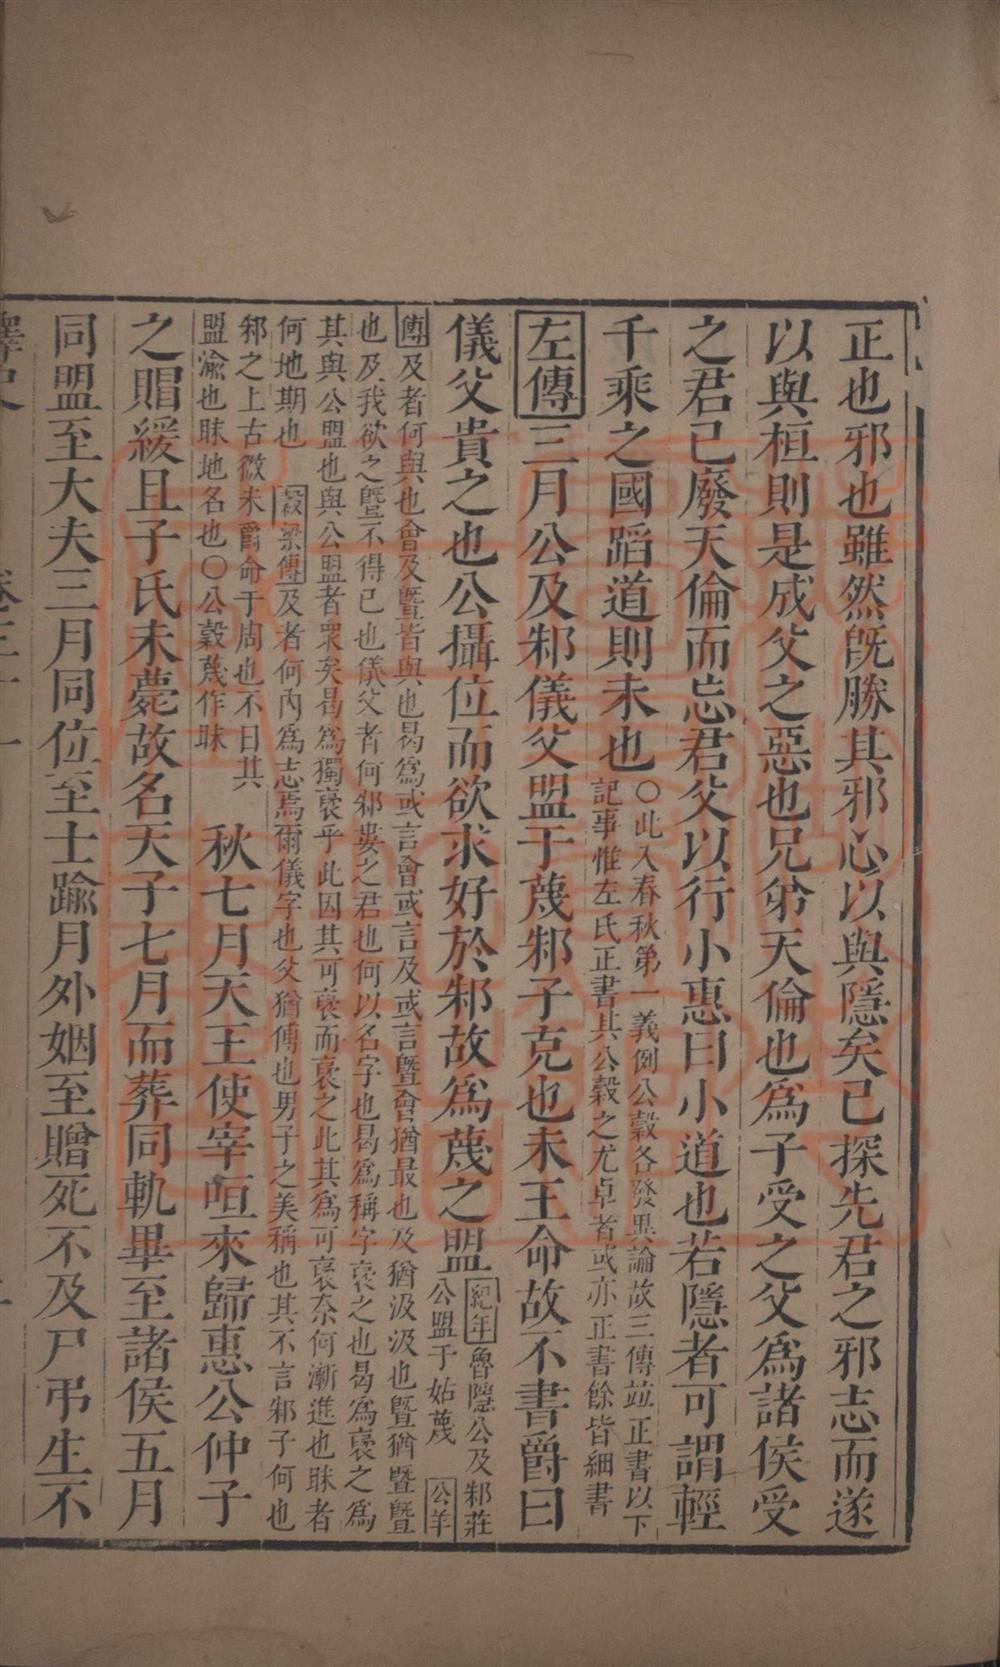 正也邪也雖然旣勝其邪心以與隱矣已探先君之邪志而遂
以與桓則是成父之惡也兄弟天倫也爲子受之父爲諸侯受
之君已廢天倫而忘君父以行小惠曰小道也若隱者可謂輕
千乘之國蹈道則未也
○此入春秋第一義例公穀各發異論故三傳並正書以下
記事惟左氏正書其公穀之尤卓者或亦正書餘皆細書
左傳三月公及邾儀父盟于蔑邾子克也未王命故不書爵曰
儀父貴之也公攝位而欲求好於邾故爲蔑之盟
紀年魯隱公及邾莊
公盟于姑蔑 公羊
傳及者何與也會及暨皆與也曷爲或言會或言及或言暨會猶最也及猶汲汲也暨猶暨暨
也及我欲之暨不得已也儀父者何邾婁之君也何以名字也曷爲稱字褒之也曷爲褒之爲
其與公盟也與公盟者衆矣曷爲獨褒乎此因其可褒而褒之此其爲可褒奈何漸進也眛者
何地期也 穀梁傳及者何內爲志焉爾儀字也父猶傅也男子之美稱也其不言邾子何也
邾之上古微未爵命于周也不日其
盟渝也眛地名也○公穀蔑作眛
秋七月天王使宰咺來歸惠公仲子
之賵緩且子氏未薨故名天子七月而葬同軌畢至諸侯五月
同盟至大夫三月同位至士踰月外姻至贈死不及尸弔生不